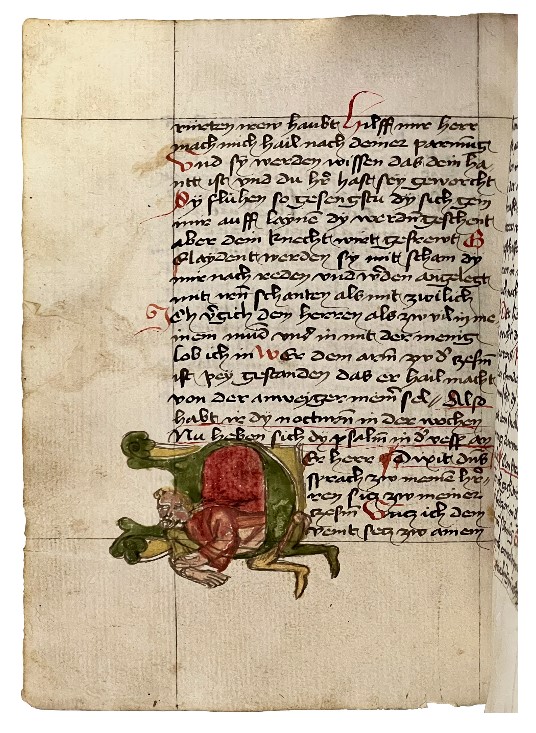 rürten irew haubt Hilff mir herr
mach mich hail nach deiner parmüg
Vnd sy werden wissen das dein ha-
nt ist vnd du hr hast sey geworcht
Sy fluhen so gesengstu dy sich gein
mir auff laynē dy werdn geschent
aber dein knecht wirt gefrewt B
klaydent werden sy mit scham dy
mir nach reden vnd wden angelegt
mit irn schanten als mit zwilich
Ich vgich dem herren als zw vil in me
inem mūd vnd in mit der menig
lob ich in Wer dem armē zw d zesm
ist pey gestanden das er hail macht
von der anweiger meinr sel Also
habt ir dy nocturn in der wochen
Nu heben sich dy psalm in d vesp an
Er herr Dixit dns
sprach zw meinē hr-
ren sicz zw meiner
zesm Vncz ich dein
veint secz zw ainem